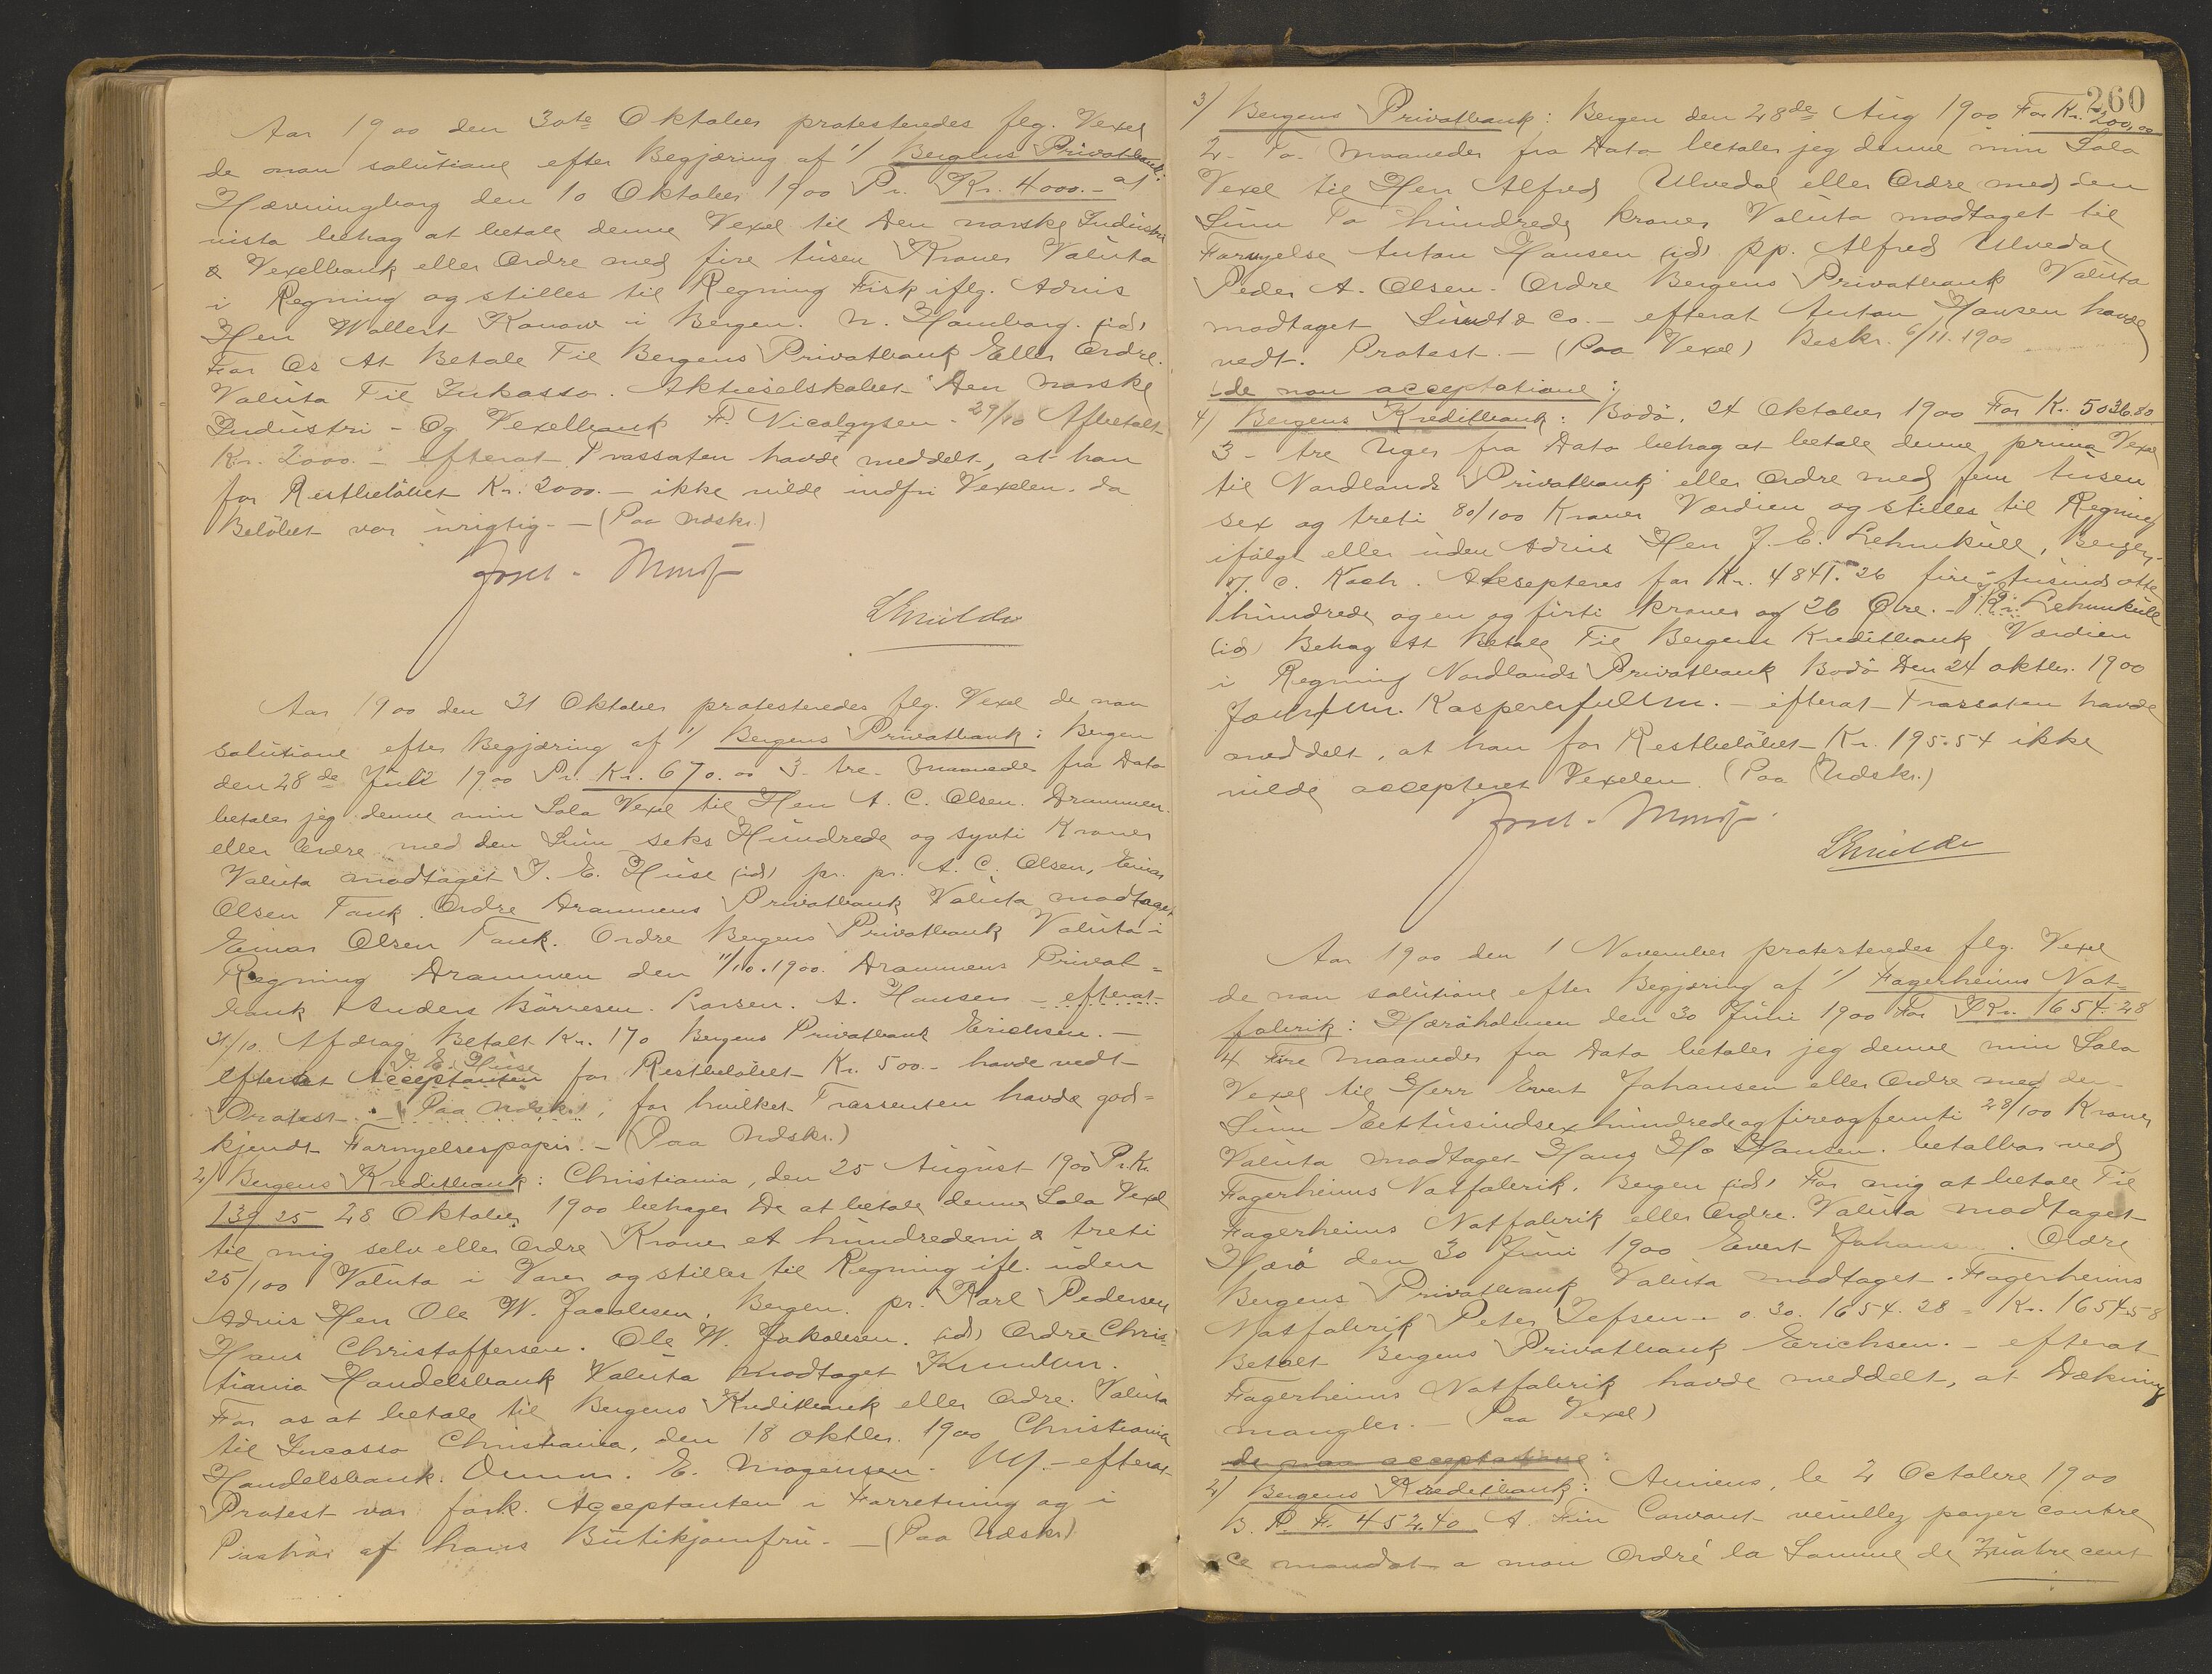 Aar 1900 den 30te Oktober protesteredes flg. Vexel
de non solutione efter Begjæring af 1/ Bergens Privatbank:
Hævningberg den 10 Oktober 1900 Pr. Kr. 4000.- a1
vista behag at betale denne Vexel til Den norske Industri
& Vexelbank eller Ordre med fire tusen Kroner Valuta
i Regning og stilles til Regning Fisk iflg. Advis
Herr Wollert Konow i Bergen. N. Hamborg. (id)
For Os At Betale Til Bergens Privatbank Eller Ordre.
Valuta Til Inkasso. Aktieselskabet Den Norske
Industri - Og Vexelbank F. Nicolaysen. 29/10 Afbetalt
Kr. 2000.- efterat Trassaten havde meddelt, at han
for Restbeløbet Kr. 2000.- ikke vilde indfri Vexelen, da
Beløbet var urigtig. - (Paa Udskr.)
Aar 1900 den 31 Oktober protesteredes flg. Vexel de non
solutione efter Begjæring af 1/ Bergens Privatbank: Bergen
den 28de Juli 1900 Pr. Kr. 670.00 3- tre- Maaneder fra Dato
betaler jeg denne min Sola Vexel til Herr A. C. Olsen. Drammen
eller Ordre med den Sum seks Hundrede og sytti Kroner
Valuta modtaget J. E. Huse (id) pr. pr. A. C. Olsen, Einar
Olsen Tank. Ordre Drammens Privatbank Valuta modtaget
Einar Olsen Tank. Ordre Bergens Privatbank Valuta i
Regning Drammen den 11/10.1900. Drammens Privat=
bank Anders Børresen. Larsen. A. Hansen - efterat
31/10. Afdrag Betalt Kr. 170 Bergens Privatbank Erichsen. -
J. E. Huse
efterat Acceptanten for Restbeløbet Kr. 500.- havde vedt-
Protest. - (Paa Udskr.), for hvilket Trassenten havde god=
kjendt Fornyelsespapir. - (Paa Udskr.)
2/ Bergens Kreditbank: Christiania, den 25 August 1900 Pr. Kr.
139.25 28 Oktober 1900 behager De at betale denne Sola Vexel
til mig selv eller Ordre Kroner et hundredeni & treti
25/100 Valuta i Varer og stilles til Regning ifl. uden
Advis Herr Ole W. Jacobsen, Bergen. pr. Karl Pedersen
Hans Christoffersen. Ole W. Jakobsen. (id) Ordre Chris=
tiania Handelsbank Valuta modtaget
For os at betale til Bergens Kreditbank eller Ordre. Valuta
til Incasso Christiania, den 18 oktbr. 1900 Christiania
Handelsbank. E. Mogensen. - efterat
Protest var fork. Acceptanten i Forretning og i
Paahør af hans Butikjomfru. - (Paa Udskr.)
260
3/ Bergens Privatbank: Bergen den 28de Aug 1900 For Kr. 200,00
2- To- Maaneder fra Dato betaler jeg denne min Sola
Vexel til Herr Alfred Ulvedal eller Ordre med den
Sum To hundrede kroner Valuta modtaget til
Fornyelse Anton Hansen (id) pp. Alfred Ulvedal
Peder A. Olsen. Ordre Bergens Privatbank Valuta
modtaget Sundt & Co. - efterat Anton Hansen havde
vedt. Protest. - (Paa Vexel) Beskr. 6/11.1900
de non acceptatione:
4/ Bergens Kreditbank: Bodö, 24 Oktober 1900 For Kr. 5036.80
3- tre Uger fra Dato behag at betale denne prima Vexel
til Nordlands Privatbank eller Ordre med fem tusen
sex og treti 80/100 Kroner Værdien og stilles til Regning
ifølge eller uden Advis Herr J. E. Lehmkuhl, Bergen,
J. C. Koch. Aksepteres for Kr. 4841.26 fire tusind otte
hundrede og en og førti kroner og 26 Øre. - Kr. Lehmkuhl
(id) Behag At Betale Til Bergens Kreditbank Værdien
i Regning Nordlands Privatbank Bodö Den 24 oktbr. 1900
- efterat Trassaten havde
meddelt, at han for Restbeløbet Kr. 195.54 ikke
vilde acceptere Vexelen. (Paa Udskr.)
Aar 1900 den 1 November protesteredes flg. Vexel
de non solutione efter Begjæring af 1/ Fagerheims Not=
fabrik: Hærøholmen den 30 Juni 1900 For Kr. 1654.28
4 Fire Maaneder fra Dato betaler jeg denne min Sola
Vexel til Herr Evert Johansen eller Ordre med den
Sum Eettusindsexhundredeogfireogfemti 28/100 Kroner
Valuta modtaget Hans Ho Hansen. betalbar ved
Fagerheims Notfabrik, Bergen (id) For mig at betale Til
Fagerheims Notfabrik eller Ordre. Valuta modtaget
Hærø den 30 Juni 1900 Evert Johansen. Ordre
Bergens Privatbank Valuta modtaget. Fagerheims
Notfabrik Peter Jefsen. - o.30. 1654.28 = Kr. 1654.58
Betalt Bergens Privatbank Erichsen. - efterat
Fagerheims Notfabrik havde meddelt, at Dækning
mangler. - (Paa Vexel)
de non acceptatione:
2/ Bergens Kreditbank: Amiens, le 2 Octobre 1900
B. P. F. 452.40 A. Fin Courant veuillez payer contre
ce mandat a mon Ordre la Somme de Quatre cent